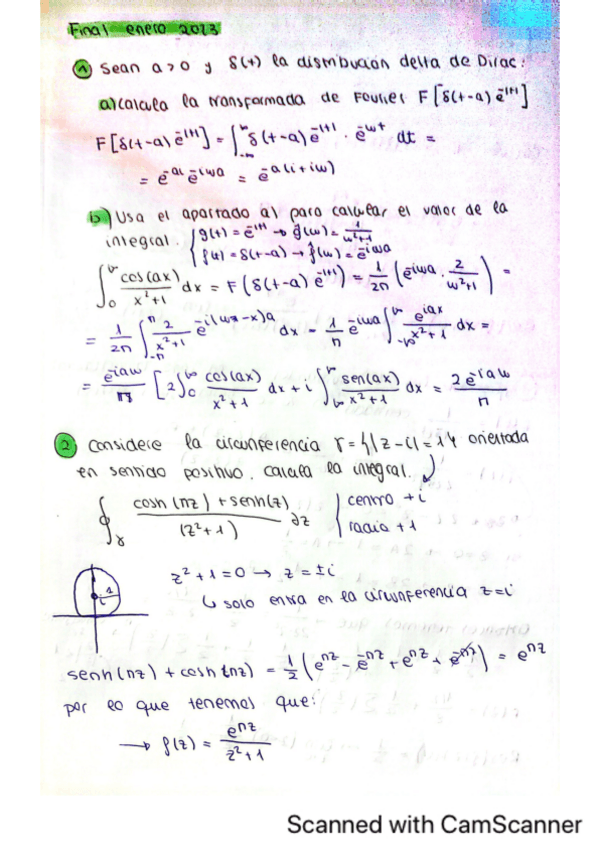 Final enero 2023
1 Sean a>0 y δ(t) la distribución delta de Dirac:
a) calcula la transformada de Fourier F[δ(t-a)e^-|t|]
F[δ(t-a)e^-|t|] = ∫_-∞^∞ δ(t-a)e^-|t| · e^-iωt dt =
= e^-a e^-iωa = e^-a(1+iω)
b) Usa el apartado a) para calcular el valor de la
integral. { g(t) = e^-|t| → ĝ(ω) = 1/(ω²+1)
f(t) = δ(t-a) → f̂(ω) = e^-iωa
∫_0^∞ cos(ax)/(x²+1) dx = F(δ(t-a)e^-|t|) = 1/2π (e^-iωa · 2/(ω²+1)) =
= 1/2π ∫_-π^π 2/(x²+1) e^-i(ω-x)a dx = 1/π e^-iωa ∫_-∞^∞ e^iax/(x²+1) dx =
= e^-iaω/π [2∫_0^∞ cos(ax)/(x²+1) dx + i ∫_-∞^∞ sen(ax)/(x²+1) dx = 2e^-iaω/π
2 Considere la circunferencia γ = {|z-i|=1} orientada
en sentido positivo. calcula la integral.
∮_γ (cosh(πz)+senh(z))/(z²+1) ∂z { centro +i
radio +1
z²+1=0 → z=±i
↳ solo entra en la circunferencia z=i
1
i
senh(πz) + cosh(πz) = 1/2 (e^πz - e^-πz + e^πz + e^-πz) = e^πz
por lo que tenemos que:
→ f(z) = e^πz/(z²+1)
Scanned with CamScanner